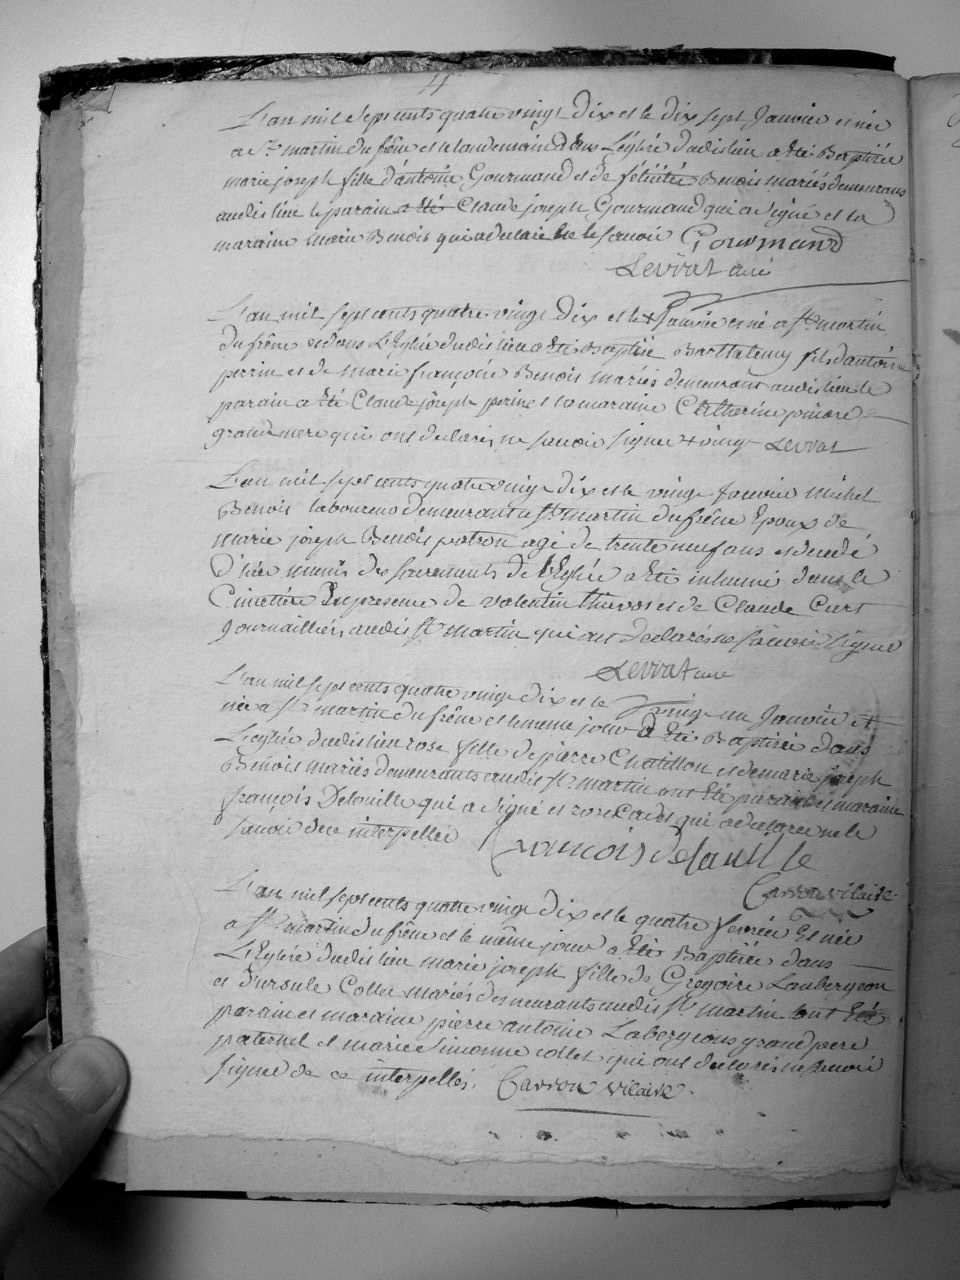 4
L'an mil sept cents quatre vingt dix et le dix sept Janvier est née
a St martin du frêne et le landemain dans L'église dudis lieu a Eté Baptisée
marie joseph fille d'antoine Gourmand et de félicitée Benois mariés demeurans
audis lieu le parain a été Claude joseph Gourmand qui a signé et la
maraine marie Benois qui a declaré ne le savoir Gourmand
Levrat curé
L'an mil sept cents quatre vingt dix et le Janvier est né a St martin
du frêne et dans L'Eglise dudis lieu a Eté Baptisé Barthelemy fils d'antoine
perrin et de marie françoise Benois mariés demeurant audis lieu le
parain a Eté Claude joseph perrin et la maraine Catherine
grand mere qui ont declarés ne savoir signer Levrat
L'an mil sept cents quatre vingt dix et le vingt Janvier Michel
Benois laboureur demeurant a St martin du frêne Epoux de
marie joseph Benois patron agé de trente neuf ans et decedé
d'hier munis des sacrements de l'Eglise a Eté inhumé dans le
Cimetière En presence de valentin thevos et de Claude Curt
journailliers audis St martin qui ont declarés ne savoir signer
Levrat curé
L'an mil sept cents quatre vingt dix et le vingt un Janvier est
née a St martin du frêne et le meme jour a Eté Baptisée dans
L'eglise dudis lieu rose fille de pierre Chatillon et de marie joseph
Benois mariés demeurants audis St martin ont Eté parain et maraine
françois Delouille qui a signé et rose qui a declaré ne le
savoir de ce interpellée françois
Carron vicaire
L'an mil sept cents quatre vingt dix et le quatre fevrier Est née
a St martin du frêne et le même jour a Eté Baptisée dans
L'Eglise dudis lieu marie joseph fille de Gregoire Laubergeon
et d'ursule Collet mariés demeurants audis St martin ont Eté
parain et maraine pierre antoine Labergeons grand pere
paternel et marie Simonne collet qui ont declarés ne savoir
signer de ce interpellés. Carron vicaire.